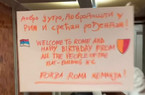 Добро јутро, Добродошли у
Рим и срећан рођендан!
WELCOME TO ROME AND
HAPPY BIRTHDAY FROM
ALL THE PEOPLE OF THE
FORZA ROMA